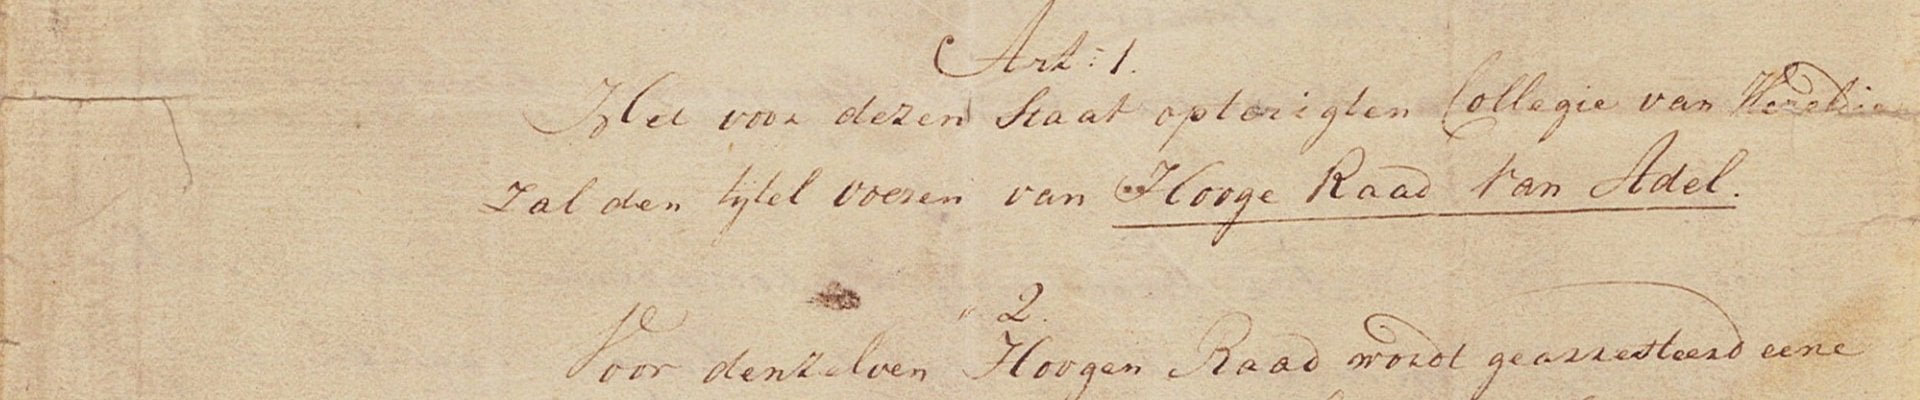 Art: 1.
Het voor dezen Staat opterigten Collegie van Heraldie
zal den tytel voeren van Hooge Raad van Adel.
" 2.
Voor denzelven Hoogen Raad wordt gearresteerd eene